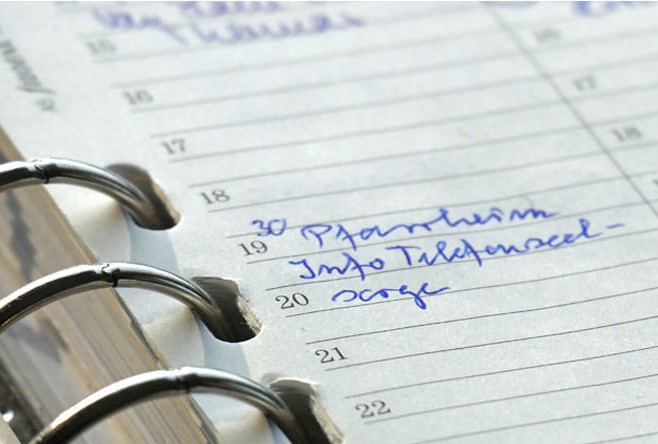 15
16
16
17
17
18
18
30 Pfarrheim
19 Info Telefonseel-
20 sorge
21
22